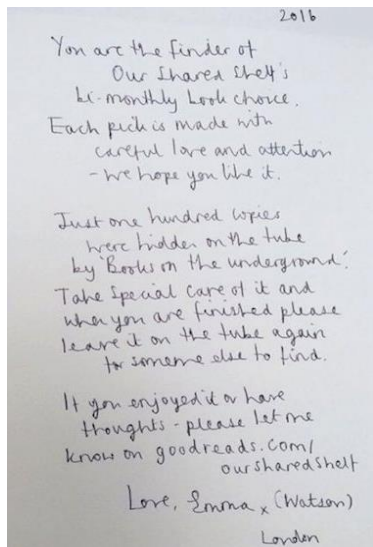 2016
You are the finder of
Our Shared Shelf's
bi-monthly book choice.
Each pick is made with
careful love and attention
- we hope you like it.
Just one hundred copies
were hidden on the tube
by 'Books on the underground'.
Take special care of it and
when you are finished please
leave it on the tube again
for someone else to find.
If you enjoyed it or have
thoughts - please let me
know on goodreads.com/
oursharedshelf
Love, Emma x (Watson)
London